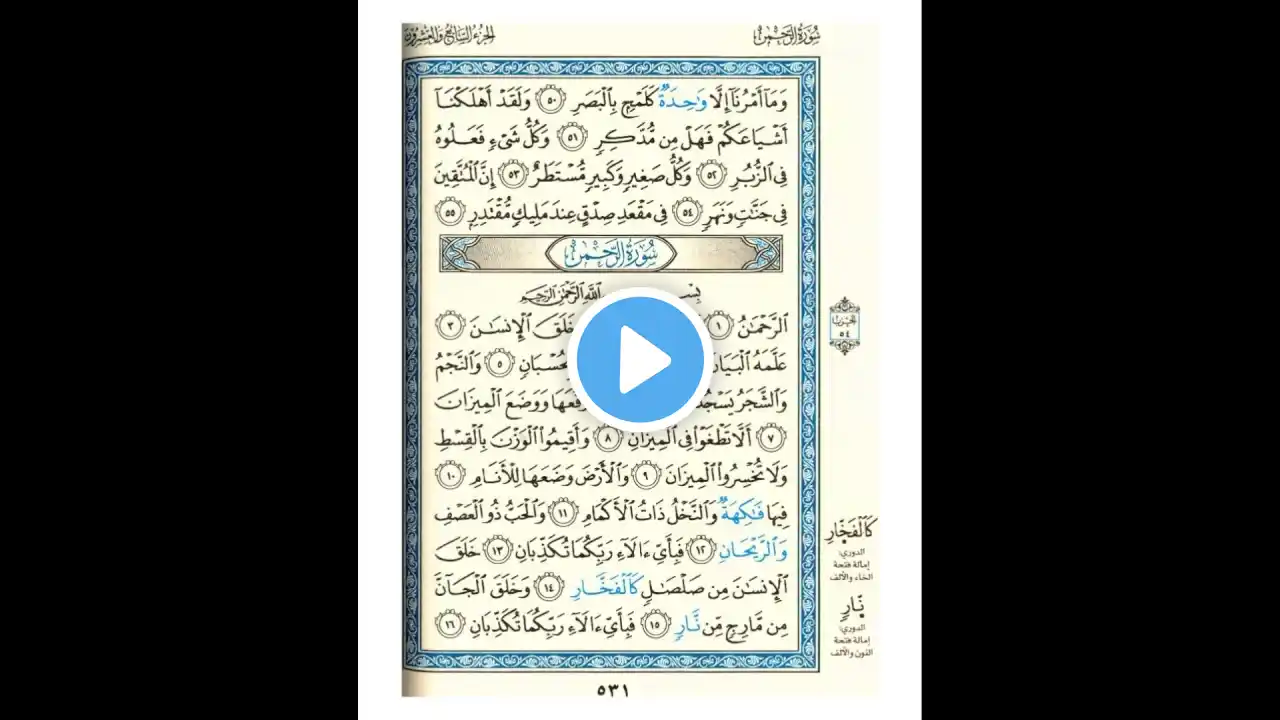 سُورَةُ الرَّحْمٰن
الجُزْءُ السَّابِعُ وَالْعِشْرُونَ
وَمَآ أَمْرُنَآ إِلَّا وَٰحِدَةٌ كَلَمْحٍۭ بِالْبَصَرِ ٥٠ وَلَقَدْ أَهْلَكْنَآ
أَشْيَاعَكُمْ فَهَلْ مِن مُّدَّكِرٍ ٥١ وَكُلُّ شَىْءٍ فَعَلُوهُ
فِى الزُّبُرِ ٥٢ وَكُلُّ صَغِيرٍ وَكَبِيرٍ مُّسْتَطَرٌ ٥٣ إِنَّ الْمُتَّقِينَ
فِى جَنَّٰتٍ وَنَهَرٍ ٥٤ فِى مَقْعَدِ صِدْقٍ عِندَ مَلِيكٍ مُّقْتَدِرٍۭ ٥٥
سُورَةُ الرَّحْمٰن
بِسْـ اللَّهِ الرَّحْمَٰنِ الرَّحِيمِ
الرَّحْمَٰنُ ١ خَلَقَ الْإِنسَٰنَ ٣
عَلَّمَهُ الْبَيَانَ بِحُسْبَانٍ ٥ وَالنَّجْمُ
وَالشَّجَرُ يَسْجُدَانِ رَفَعَهَا وَوَضَعَ الْمِيزَانَ
٧ أَلَّا تَطْغَوْا۟ فِى الْمِيزَانِ ٨ وَأَقِيمُوا۟ الْوَزْنَ بِالْقِسْطِ
وَلَا تُخْسِرُوا۟ الْمِيزَانَ ٩ وَالْأَرْضَ وَضَعَهَا لِلْأَنَامِ ١٠
فِيهَا فَٰكِهَةٌ وَالنَّخْلُ ذَاتُ الْأَكْمَامِ ١١ وَالْحَبُّ ذُو الْعَصْفِ
وَالرَّيْحَانِ ١٢ فَبِأَىِّ ءَالَآءِ رَبِّكُمَا تُكَذِّبَانِ ١٣ خَلَقَ
الْإِنسَٰنَ مِن صَلْصَٰلٍ كَالْفَخَّارِ ١٤ وَخَلَقَ الْجَآنَّ
مِن مَّارِجٍ مِّن نَّارٍ ١٥ فَبِأَىِّ ءَالَآءِ رَبِّكُمَا تُكَذِّبَانِ ١٦
الحِزْبُ
٥٤
كَالْفَخَّارِ
الدوري:
إمالة فتحة
الخاء والألف
نَّارٍ
الدوري:
إمالة فتحة
النون والألف
٥٣١